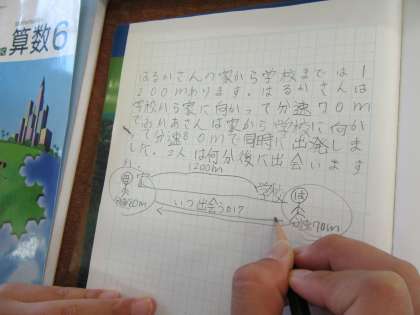 算数6
はるかさんの家から学校までは1
200mあります。はるかさんは
学校から家に向かって分速70m
でおかあさんは家から学校に向か
って分速80mで同時に出発しま
した。2人は何分後に出会います
か。
1200m
家
学校
は
いつ出会うの!?
分速80m
分速70m